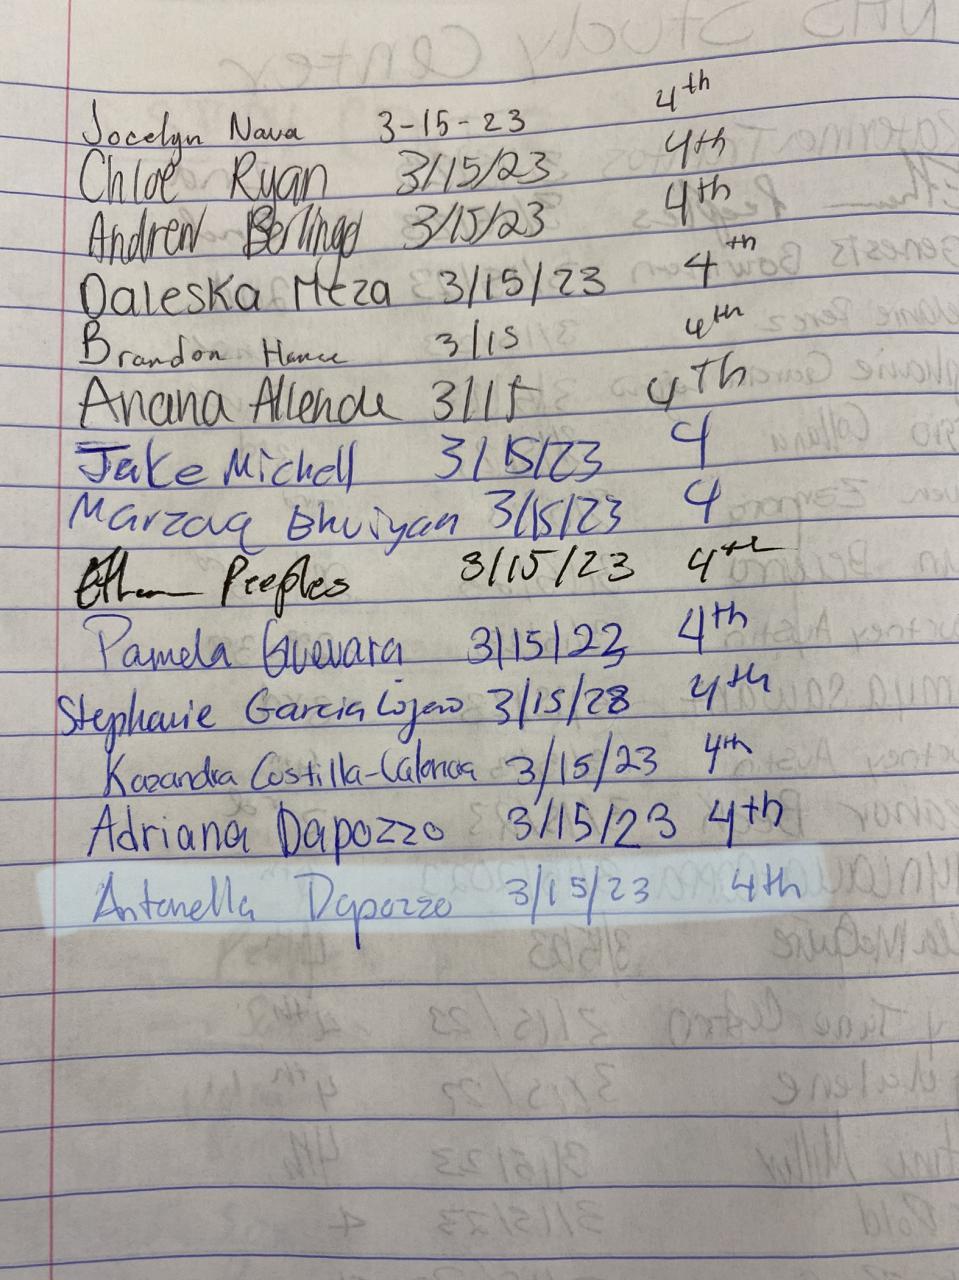 Jocelyn Nava 3-15-23 4th
Chloe Ryan 3/15/23 4th
Andrew Berlingo 3/15/23 4th
Daleska Meza 3/15/23 4th
Brandon Hance 3/15 4th
Anana Allende 3/15 4th
Jake Michell 3/15/23 4
Marzaq Bhuiyan 3/15/23 4
Ethan Peeples 3/15/23 4th
Pamela Guevara 3/15/23 4th
Stephanie Garcia Lojano 3/15/28 4th
Kazandra Costilla- 3/15/23 4th
Adriana Dapozzo 3/15/23 4th
Antonella Dapozzo 3/15/23 4th